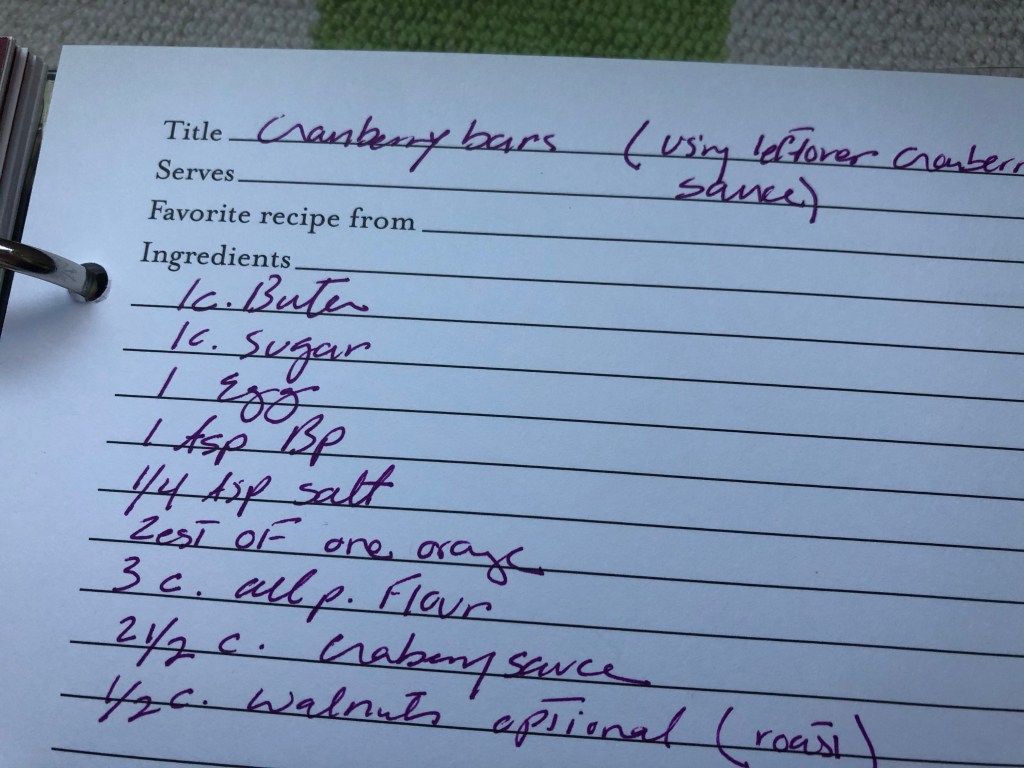 Title Cranberry bars (using leftover Cranberr
sauce)
Serves
Favorite recipe from
Ingredients
1c. Butter
1c. sugar
1 Egg
1 tsp Bp
1/4 tsp salt
Zest of one orange
3 c. all p. Flour
2 1/2 c. Craberry sauce
1/2 c. walnuts optional (roast)